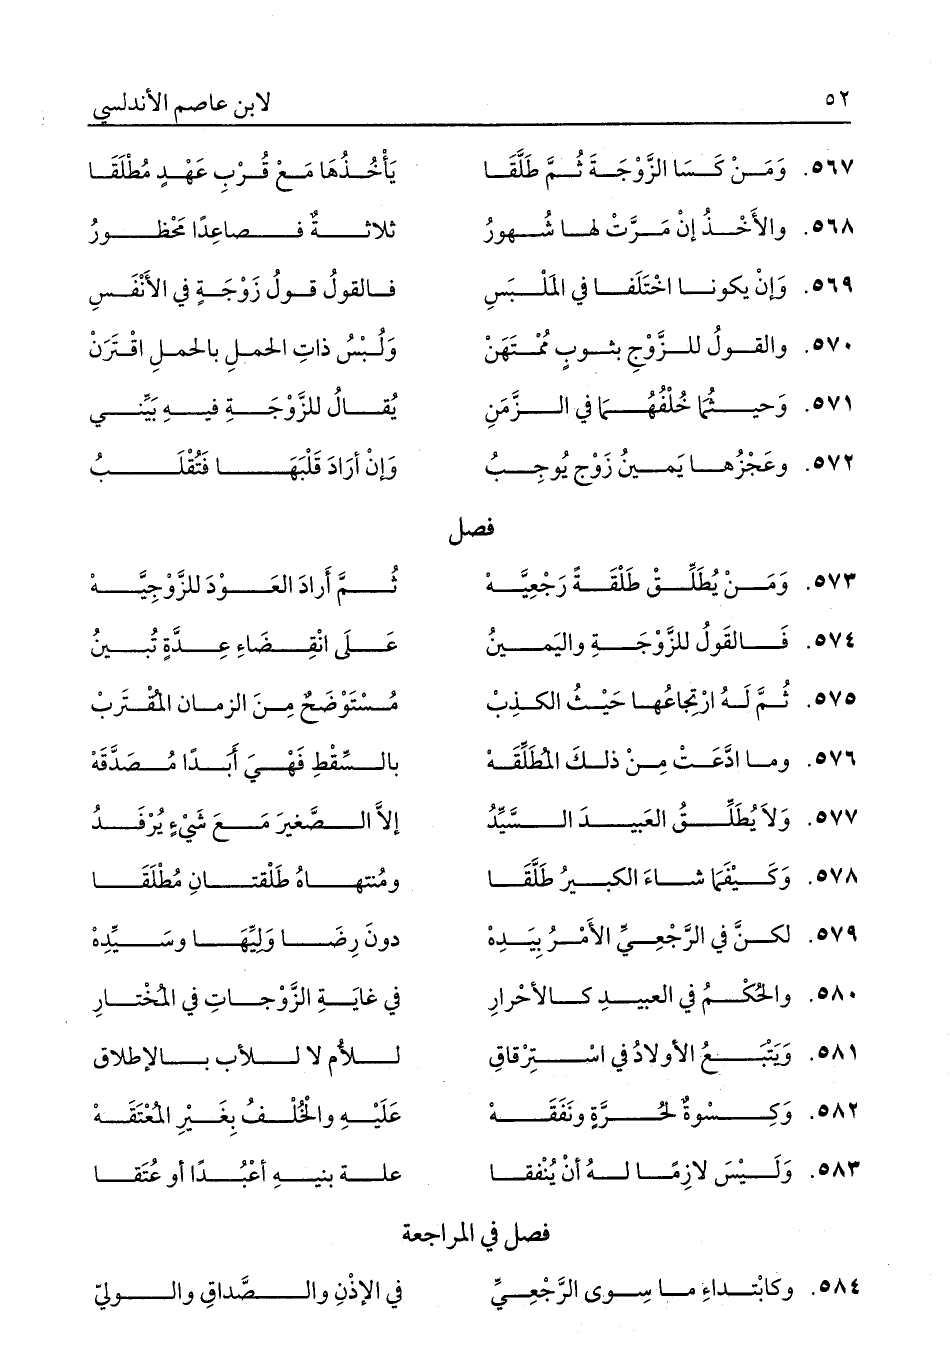 ٥٢ لابن عاصم الأندلسي
٥٦٧. وَمَنْ كَسَا الزَّوْجَةَ ثُمَّ طَلَّقَا يَأْخُذُهَا مَعْ قُرْبِ عَهْدٍ مُطْلَقَا
٥٦٨. والأَخْذُ إنْ مَرَّتْ لها شُهورُ ثلاثةٌ فصاعِدًا مَحْظورُ
٥٦٩. وَإنْ يكونا اخْتَلَفا في المَلْبَسِ فالقولُ قولُ زَوْجَةٍ في الأَنْفَسِ
٥٧٠. والقولُ للزَّوْجِ بثوبٍ مُمْتَهَنْ وَلُبْسُ ذاتِ الحملِ بالحملِ اقْتَرَنْ
٥٧١. وَحيثُما خُلْفُهُما في الزَّمَنِ يُقالُ للزَّوْجَةِ فيهِ بَيِّني
٥٧٢. وعَجْزُها يَمينُ زَوْجٍ يُوجِبُ وَإنْ أرَادَ قَلْبَهَا فَتُقْلَبُ
فصل
٥٧٣. وَمَنْ يُطَلِّقْ طَلْقَةً رَجْعِيَّهْ ثُمَّ أَرادَ العَوْدَ للزَّوْجِيَّهْ
٥٧٤. فَالقولُ للزَّوْجَةِ واليَمينُ عَلَى انْقِضَاءِ عِدَّةٍ تُبينُ
٥٧٥. ثُمَّ لَهُ ارْتِجاعُها حَيْثُ الكَذِبْ مُسْتَوْضَحٌ مِنَ الزمانِ المُقْتَرِبْ
٥٧٦. وما ادَّعَتْ مِنْ ذلكَ المُطَلَّقَهْ بالسِّقْطِ فَهْيَ أَبدًا مُصَدَّقَهْ
٥٧٧. وَلاَ يُطَلِّقُ العَبيدَ السَّيِّدُ إلاَّ الصَّغيرَ مَعَ شَيْءٍ يُرْفَدُ
٥٧٨. وَكَيْفَمَا شاءَ الكبيرُ طَلَّقَا ومُنتهاهُ طَلْقتانِ مُطْلَقَا
٥٧٩. لكنَّ في الرَّجْعِيِّ الأَمْرُ بِيَدِهْ دونَ رِضَا وَلِيِّهَا وسَيِّدِهْ
٥٨٠. والحُكْمُ في العبيدِ كالأحْرارِ في غايَةِ الزَّوْجاتِ في المُخْتارِ
٥٨١. وَيَتْبَعُ الأولادُ في اسْتِرْقاقِ للأُم لا للأب بالإطلاقِ
٥٨٢. وَكِسْوةٌ لحُرَّةٍ ونَفَقَهْ عَلَيْهِ والخُلْفُ بغَيْرِ المُعْتَقَهْ
٥٨٣. وَلَيْسَ لازِمًا لهُ أنْ يُنْفقا علىة بنيهِ أعْبُدًا أو عُتَقا
فصل في المراجعة
٥٨٤. وكابْتداءٍ ما سِوى الرَّجْعِيِّ في الإذْنِ والصَّداقِ والوليّ